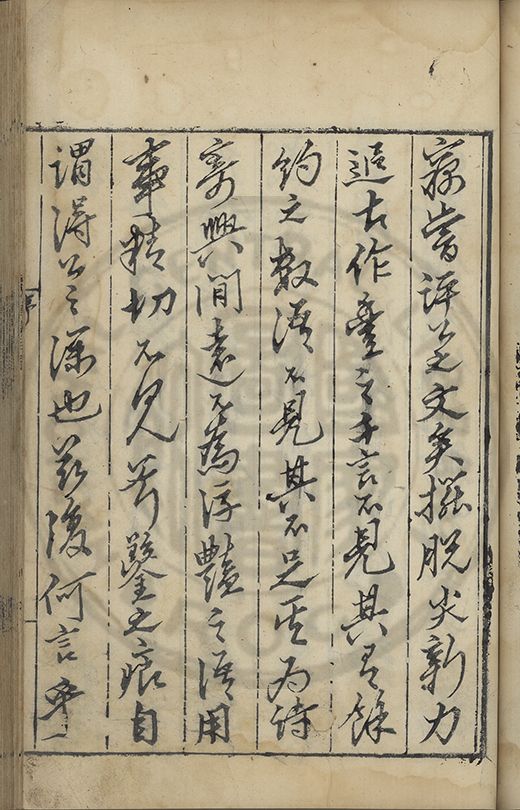 竊嘗評公之文矣擺脫尖新力
追古作豐之千言不見其有餘
約之數語不見其不足其為詩
寄興間遠不為浮艷之語用
事精切不見斧鑿之痕自
謂得公之深也茲復何言